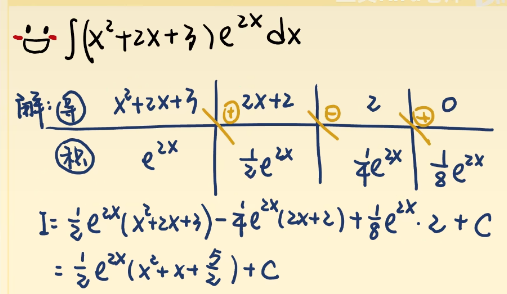 ∫(x²+2x+3)e^{2x}dx
解: 导 x²+2x+3 ⊕ 2x+2 ⊖ 2 ⊕ 0
积 e^{2x} ½e^{2x} ¼e^{2x} ⅛e^{2x}
I=½e^{2x}(x²+2x+3)-¼e^{2x}(2x+2)+⅛e^{2x}·2+C
=½e^{2x}(x²+x+5/2)+C